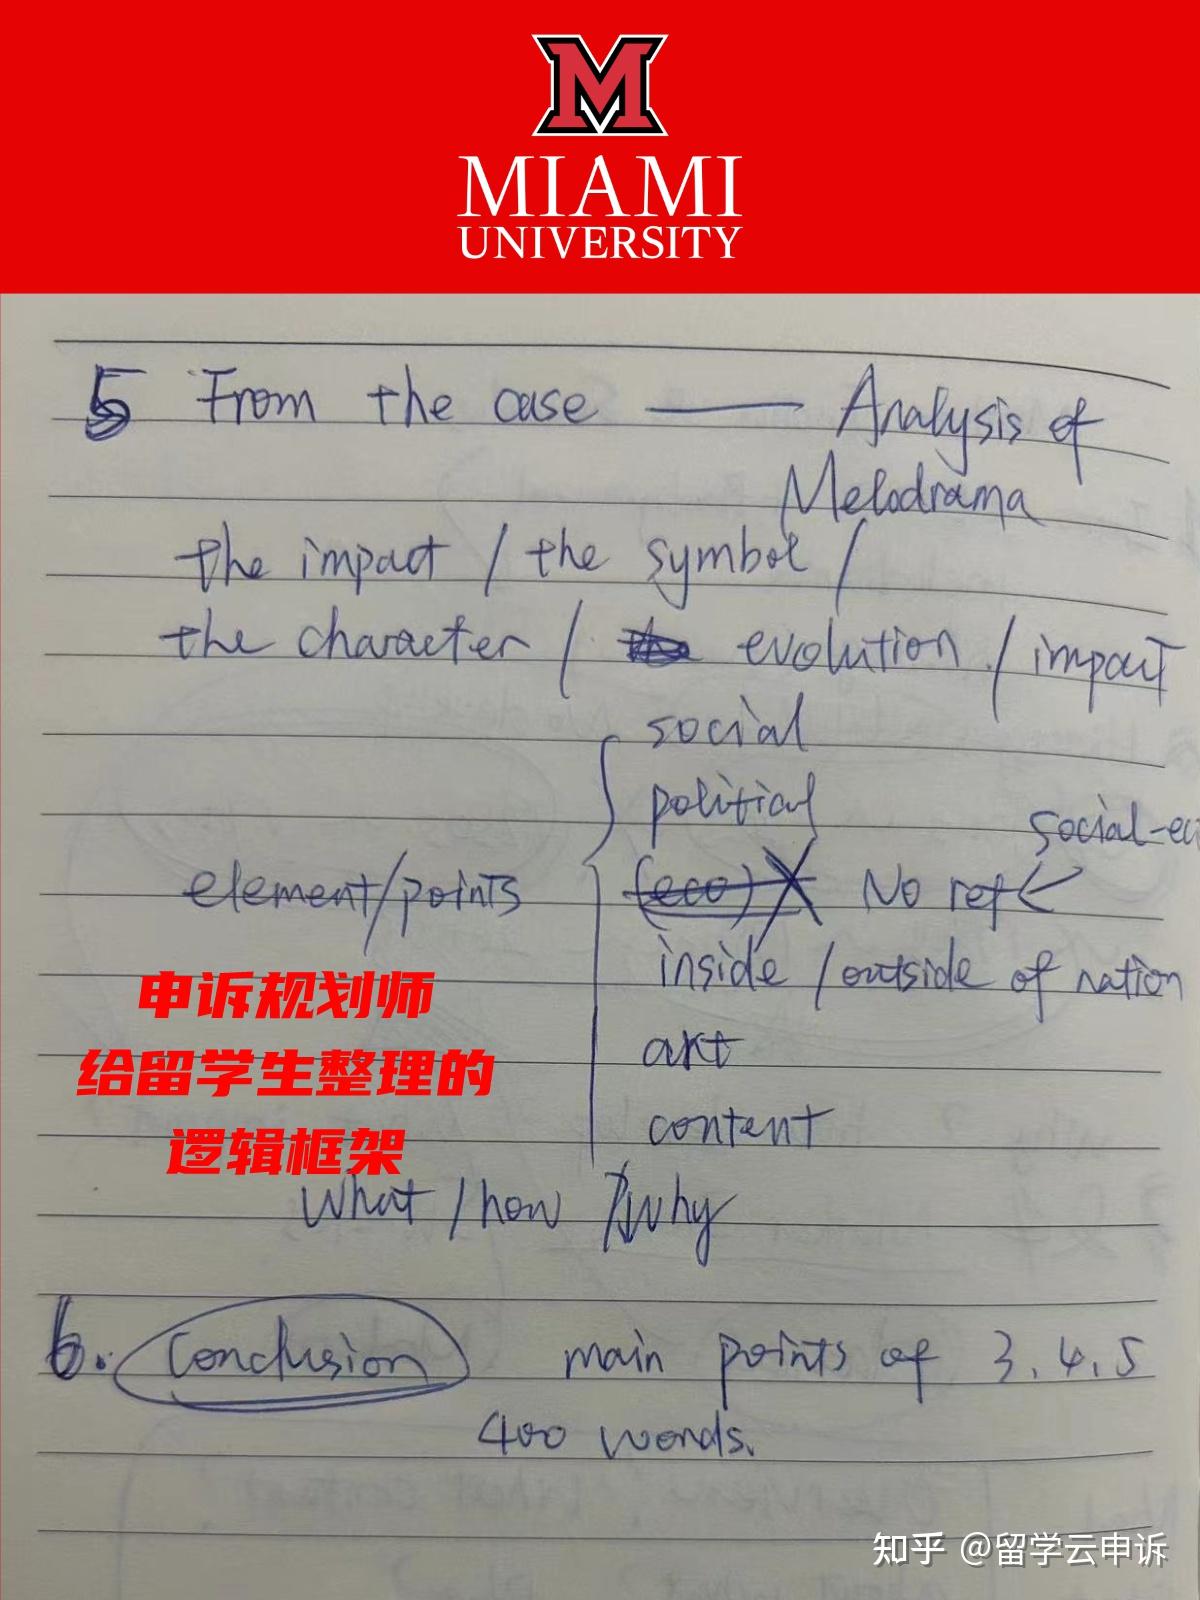 M
MIAMI
UNIVERSITY
5 From the case —— Analysis of
Melodrama
the impact / the symbol /
the character / evolution / impact
social
political
social-ec
element/points
(eco) No ref <
inside / outside of nation
art
content
申诉规划师
给留学生整理的
逻辑框架
What / how / why
6. Conclusion main points of 3, 4, 5
400 words.
知乎 @留学云申诉